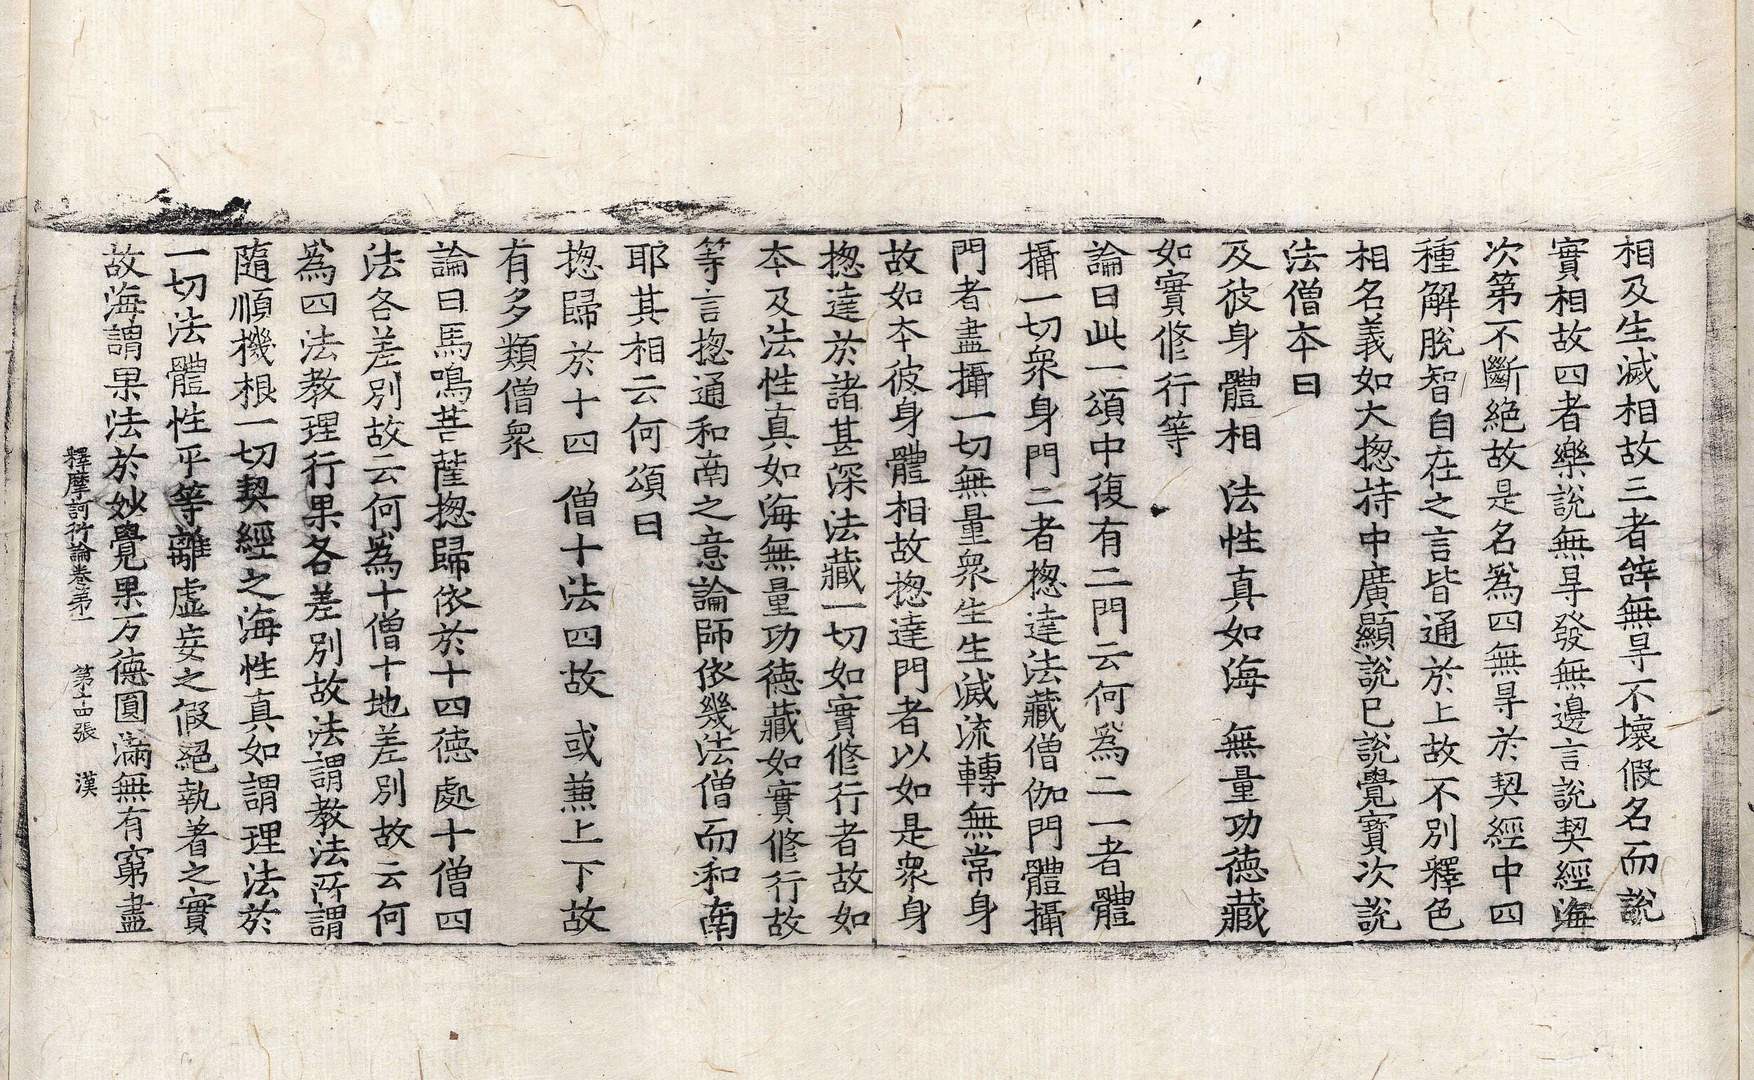 相及生滅相故三者辝無㝵不壞假名而說
實相故四者樂說無㝵發無邊言說契經海
次第不斷絕故是名爲四無㝵於契經中四
種解脫智自在之言皆通於上故不別釋色
相名義如大揔持中廣顯說已說覺寶次說
法僧本曰
及彼身體相 法性真如海 無量功德藏
如實修行等
論曰此二頌中復有二門云何爲二一者體
攝一切衆身門二者揔達法藏僧伽門體攝
門者盡攝一切無量衆生生滅流轉無常身
故如本彼身體相故揔達門者以如是衆身
揔達於諸甚深法藏一切如實修行者故如
本及法性真如海無量功德藏如實修行故
等言揔通和南之意論師依幾法僧而和南
耶其相云何頌曰
揔歸於十四 僧十法四故 或兼上下故
有多類僧衆
論曰馬鳴菩薩揔歸依於十四德處十僧四
法各差別故云何爲十僧十地差別故云何
爲四法教理行果各差別故法謂教法所謂
隨順機根一切契經之海性真如謂理法於
一切法體性平等離虛妄之假絕執著之實
故海謂果法於妙覺果万德圓滿無有窮盡
釋摩訶衍論卷第一 第十四張 漢